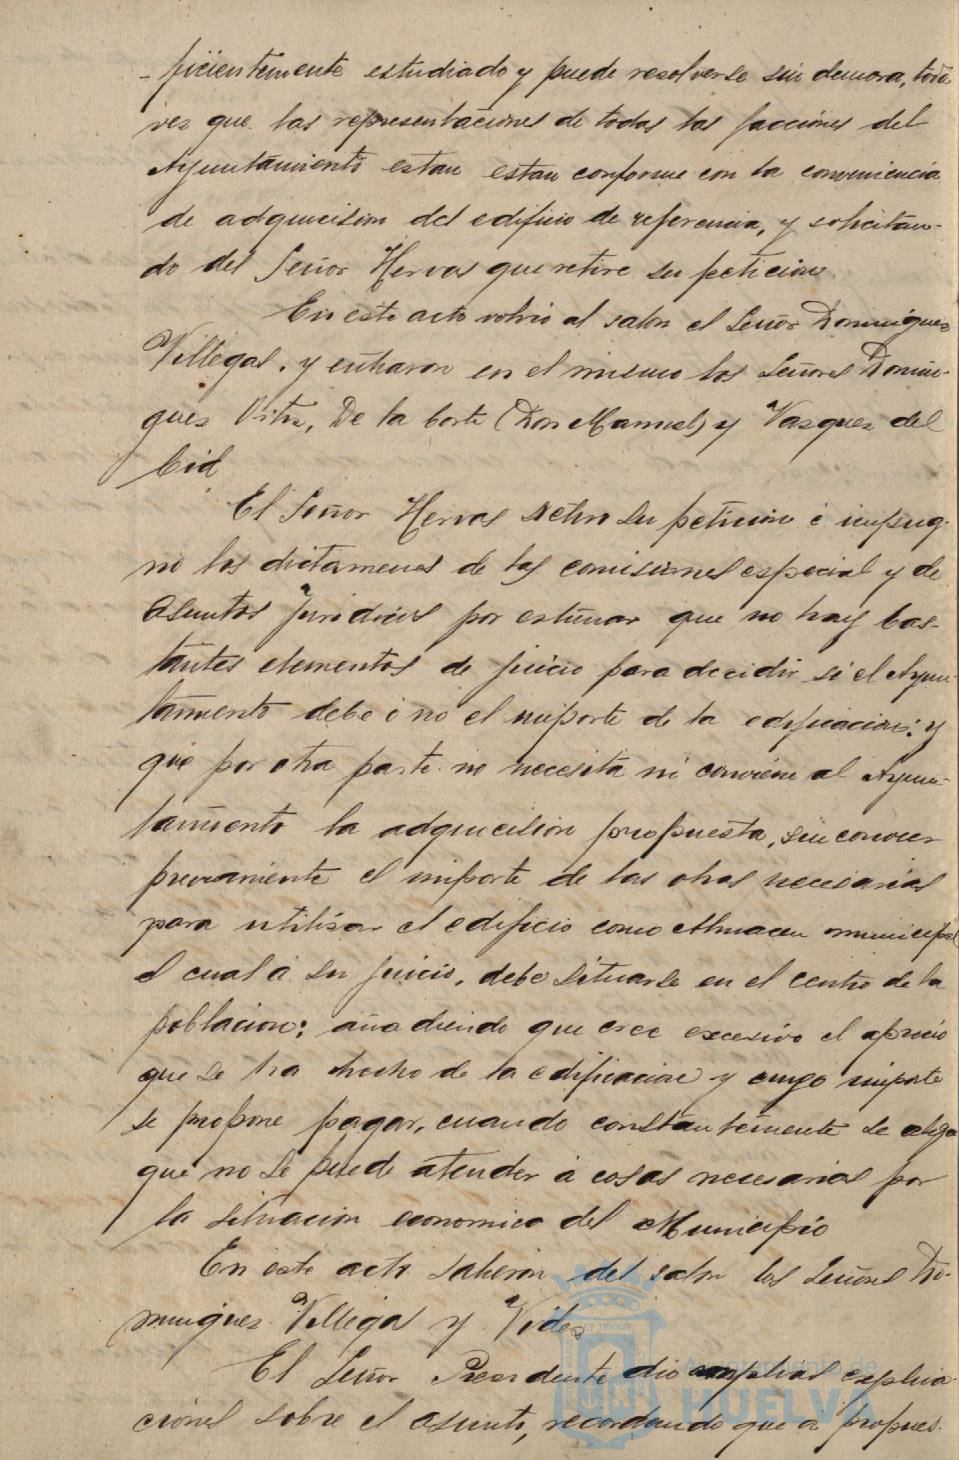 -ficientemente estudiado y puede resolverse sin demora, toda
vez que las representaciones de todas las facciones del
Ayuntamiento estan estan conforme con la conveniencia
de adquicision del edificio de referencia, y solicitan-
do del Señor Hervas que retire su peticion.
En este acto volvió al salon el Señor Dominguez
Villegas, y entraron en el mismo los Señores Domin-
guez Ortiz, De la Corte (Don Manuel) y Vazquez del
Cid
El Señor Hervas retiro su peticion é impug-
no los dictamenes de las comisiones especial y de
Asuntos Juridicos por estimar que no hay bas-
tantes elementos de juicio para decidir si el Ayun-
tamiento debe ó no el importe de la edificacion; y
que por otra parte no necesita ni conviene al Ayun-
tamiento la adquicision propuesta, sin conocer
previamente el importe de las obras necesarias
para utilizar el edificio como Almacen municipal
el cual á su juicio, debe situarse en el centro de la
poblacion; añadiendo que cree excesivo el aprecio
que se ha hecho de la edificacion y cuyo importe
se propone pagar, cuando constantemente se alega
que no se puede atender á cosas necesarias por
la situacion economica del Municipio
En este acto salieron del salon los Señores Do-
minguez Villegas y Vides
El Señor Presidente dió amplias explica-
ciones sobre el asunto, recordando que á propues-
Ayuntamiento de
HUELVA